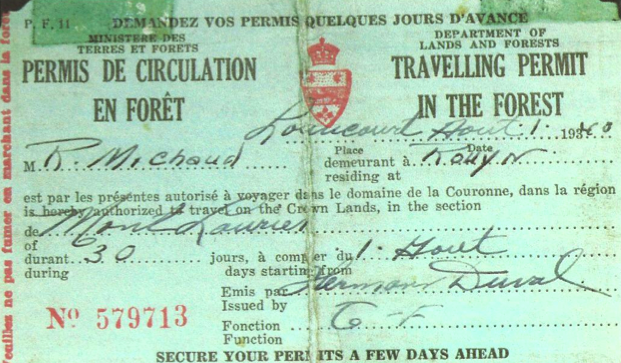 P. F. 11 DEMANDEZ VOS PERMIS QUELQUES JOURS D'AVANCE
MINISTERE DES
TERRES ET FORETS
DEPARTMENT OF
LANDS AND FORESTS
PERMIS DE CIRCULATION
EN FORÊT
TRAVELLING PERMIT
IN THE FOREST
Louvicourt Aout 1 1940
Place Date
M R Michaud demeurant à Rouyn
residing at
est par les présentes autorisé à voyager dans le domaine de la Couronne, dans la région
is hereby authorized to travel on the Crown Lands, in the section
de Mont Laurier
of
durant 30 jours, à compter du 1 Aout
during days starting from
Emis par Hermann Duval
Issued by
Nº 579713
Fonction G-F
Function
SECURE YOUR PERMITS A FEW DAYS AHEAD
Veuillez ne pas fumer en marchant dans la forêt